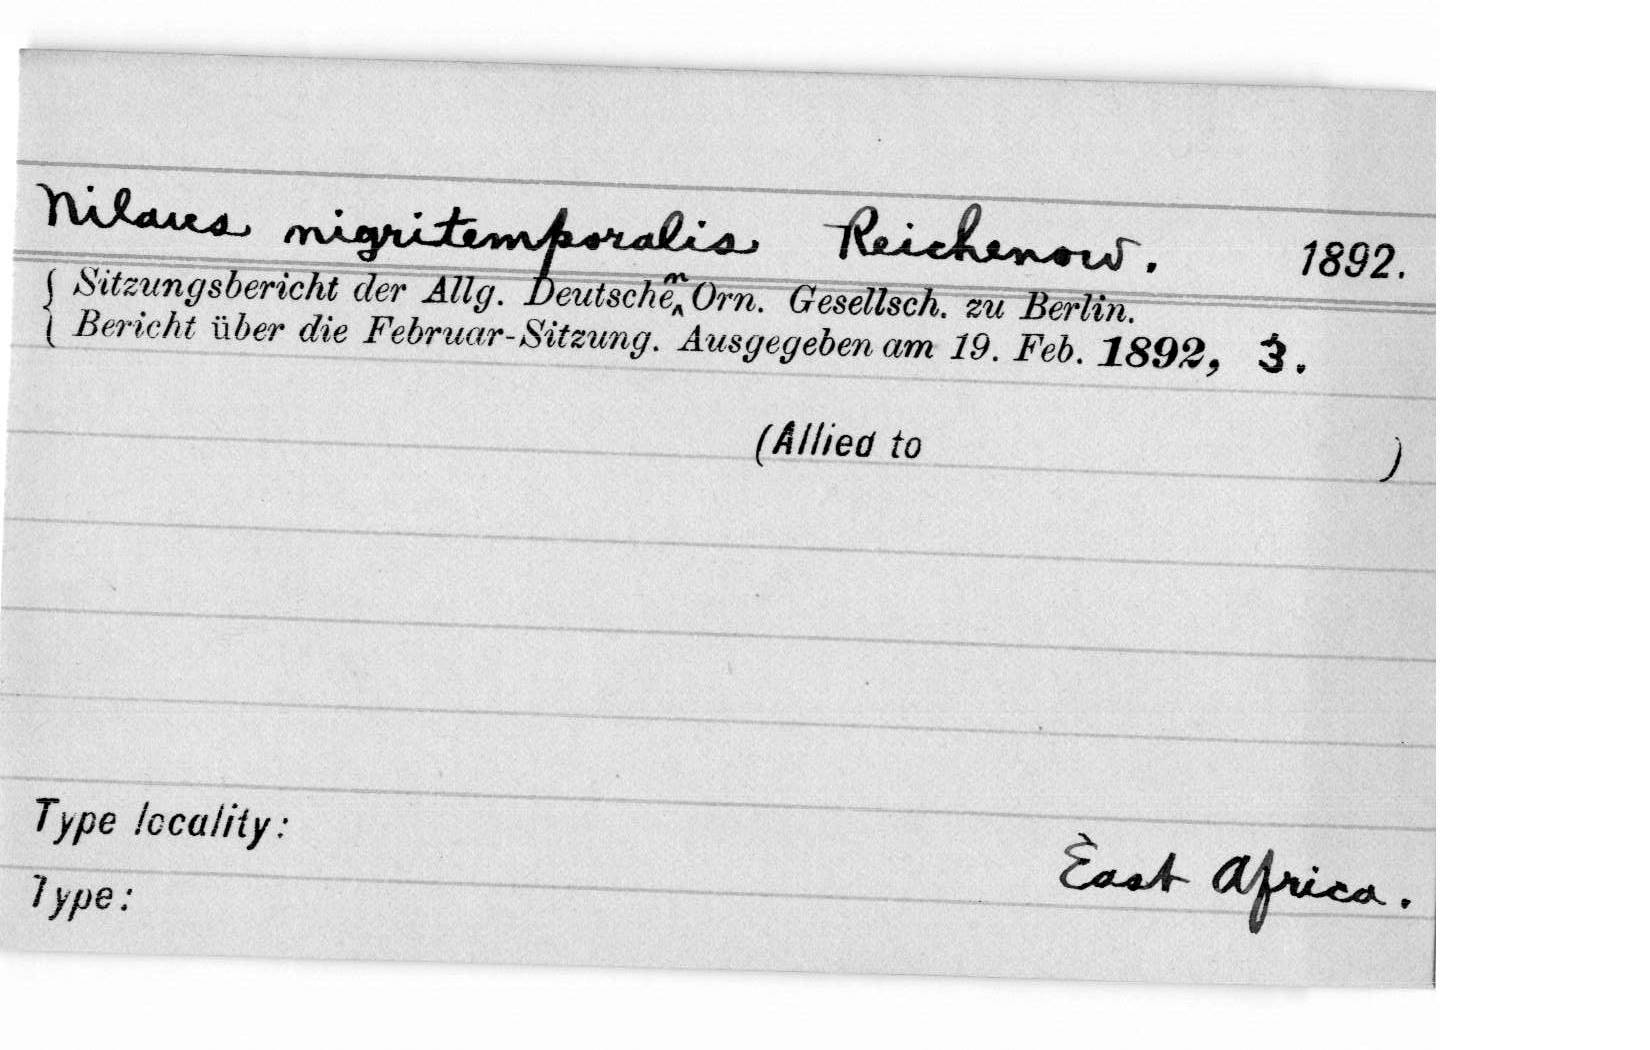 Nilaus nigritemporalis Reichenow. 1892.
Sitzungsbericht der Allg. Deutschen Orn. Gesellsch. zu Berlin.
Bericht über die Februar-Sitzung. Ausgegeben am 19. Feb. 1892, 3.
(Allied to )
Type locality:
East Africa.
Type: